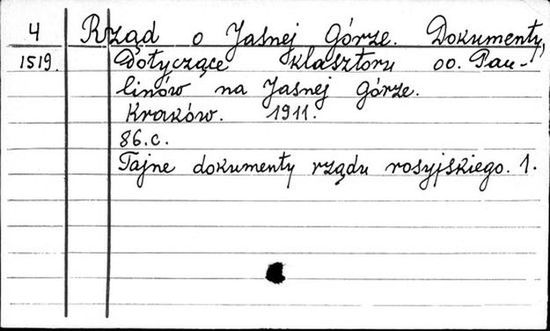 4 Rząd o Jasnej Górze. Dokumenty,
1519. dotyczące klasztoru oo. Pau-
linów na Jasnej Górze.
Kraków. 1911.
86.c.
Tajne dokumenty rządu rosyjskiego. 1.